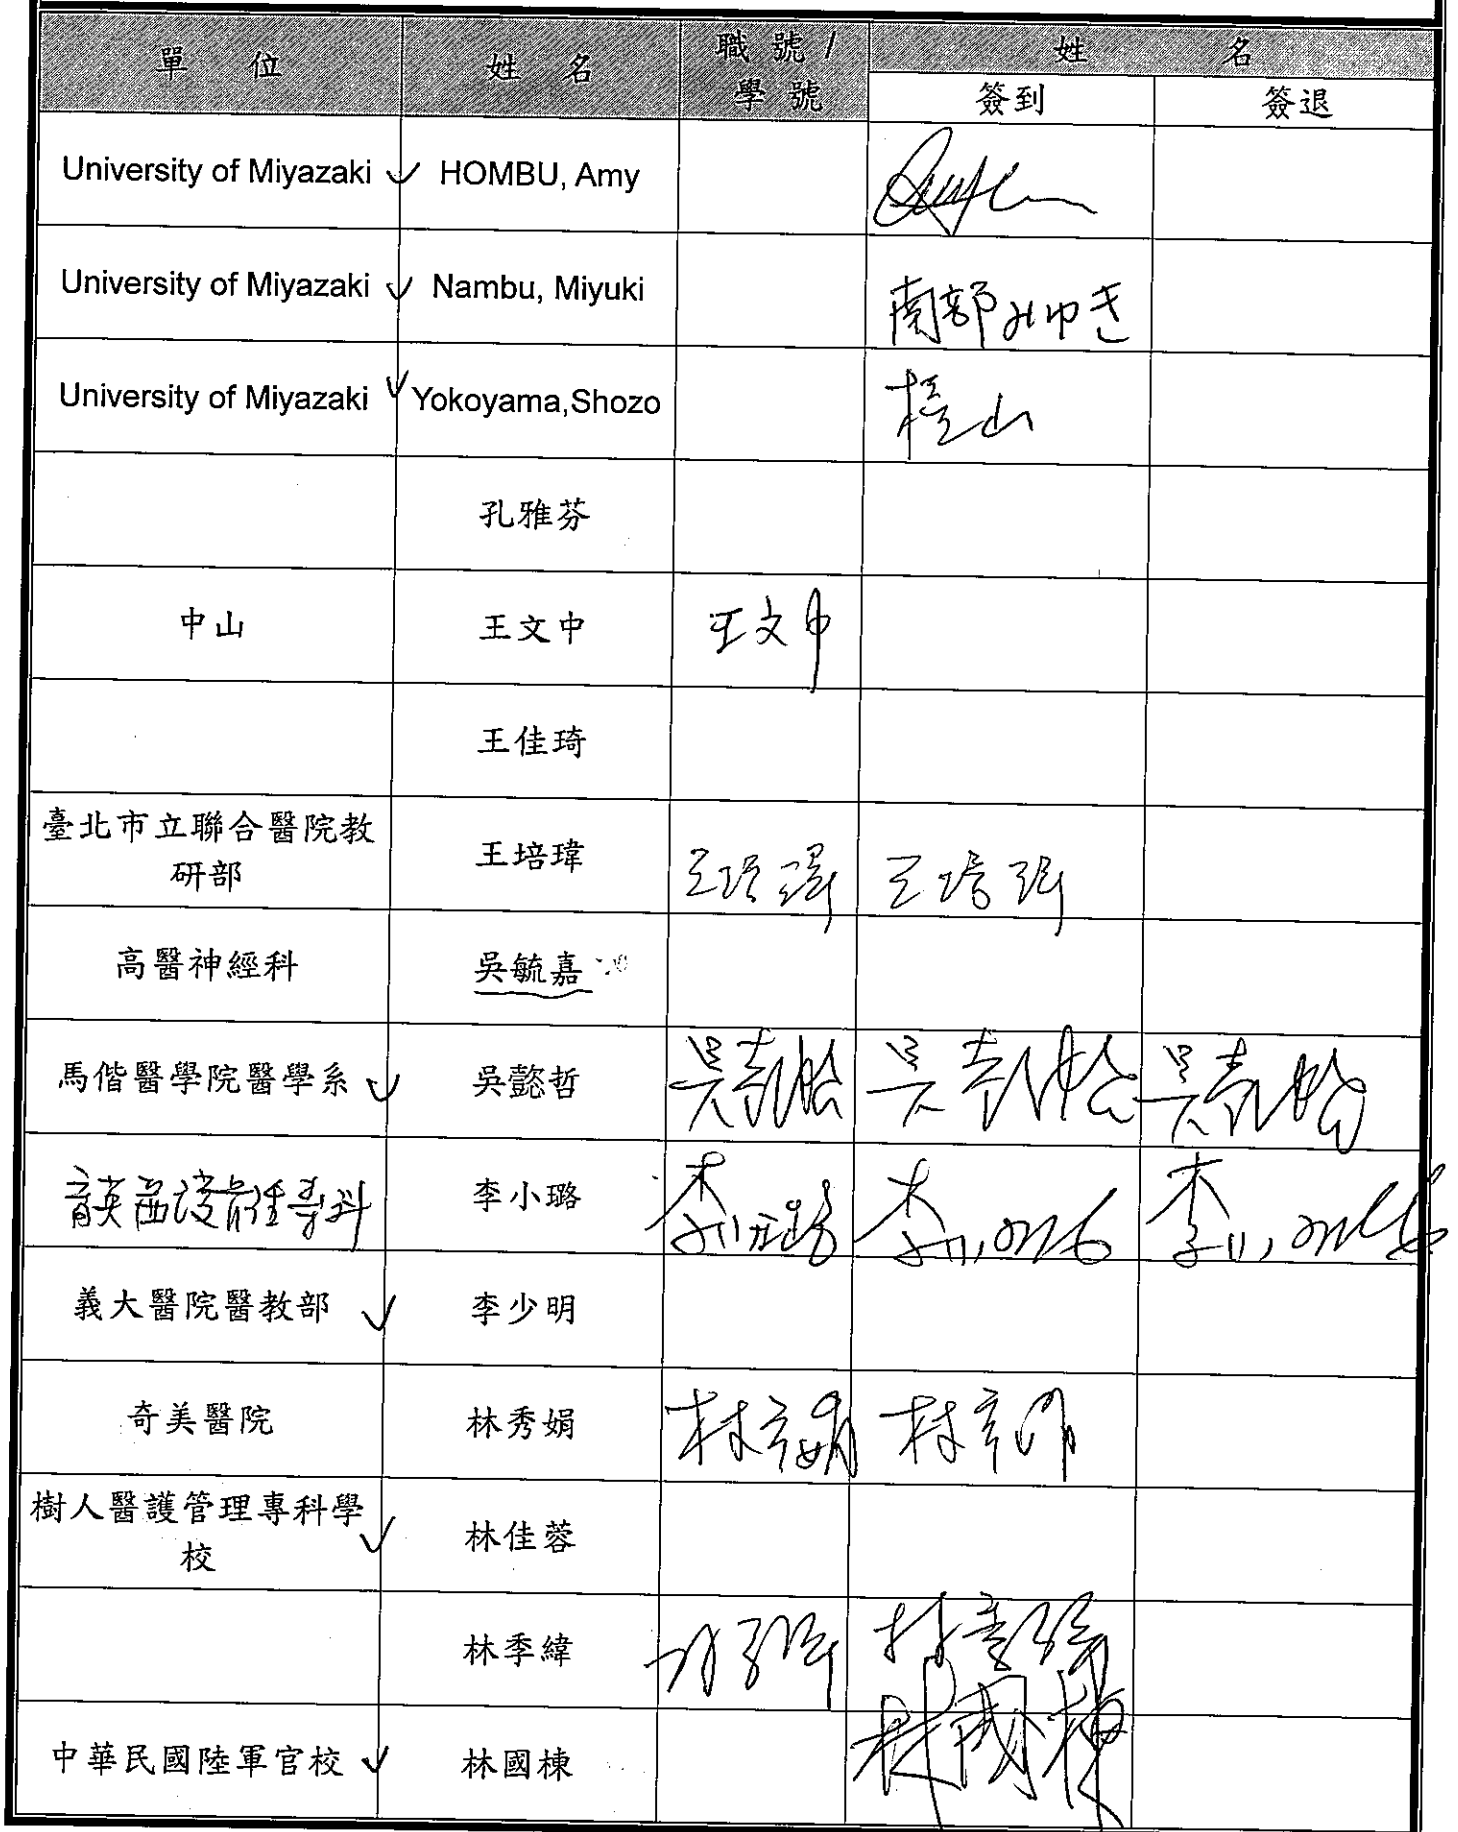 單 位 姓 名 職 號 / 學 號 姓 名
簽到 簽退
University of Miyazaki HOMBU, Amy
University of Miyazaki Nambu, Miyuki 南部みゆき
University of Miyazaki Yokoyama,Shozo 山
孔雅芬
中山 王文中 王文中
王佳琦
臺北市立聯合醫院教
研部 王培瑋 王培瑋 王培瑋
高醫神經科 吳毓嘉
馬偕醫學院醫學系 吳懿哲
李小璐 李小璐
義大醫院醫教部 李少明
奇美醫院 林秀娟 林秀娟 林秀娟
樹人醫護管理專科學
校 林佳蓉
林季緯 林季緯 林季緯
中華民國陸軍官校 林國棟 林國棟